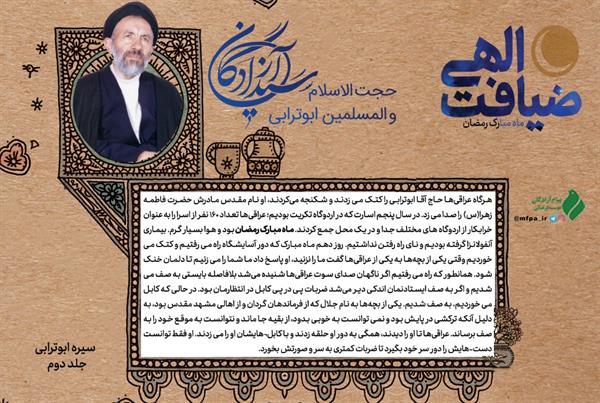 ضیافت الهی
ماه مبارک رمضان
سید آزادگان
حجت الاسلام
و المسلمین ابوترابی
پیام آزادگان
@mfpa_ir
هرگاه عراقی‌ها حاج آقا ابوترابی را کتک می زدند و شکنجه می‌کردند، او نام مقدس مادرش حضرت فاطمه
زهرا(س) را صدا می زد. در سال پنجم اسارت که در اردوگاه تکریت بودیم؛ عراقی‌ها تعداد ۱۶۰ نفر از اسرا را به عنوان
خرابکار از اردوگاه های مختلف جدا و در یک محل جمع کردند. ماه مبارک رمضان بود و هوا بسیار گرم. بیماری
آنفولانزا گرفته بودیم و نای راه رفتن نداشتیم. روز دهم ماه مبارک که دور آسایشگاه راه می رفتیم و کتک می
خوردیم وقتی یکی از بچه‌ها به یکی از عراقی‌ها گفت ما را نزنید، او پاسخ داد ما شما را می زنیم تا دلمان خنک
شود. همانطور که راه می رفتیم اگر ناگهان صدای سوت عراقی‌ها شنیده می‌شد بلافاصله بایستی به صف می
شدیم و اگر به صف ایستادنمان اندکی دیر می‌شد ضربات پی در پی کابل در انتظارمان بود. در حالی که کابل
می خوردیم، به صف شدیم. یکی از بچه‌ها به نام جلال که از فرماندهان گردان و از اهالی مشهد مقدس بود، به
دلیل آنکه ترکشی در پایش بود و نمی توانست به خوبی بدود، از بقیه جا ماند و نتوانست به موقع خود را به
صف برساند. عراقی‌ها تا او را دیدند، همگی به دور او حلقه زدند و با کابل-هایشان او را می زدند. او فقط توانست
دست-هایش را دور سر خود بگیرد تا ضربات کمتری به سر و صورتش بخورد.
سیره ابوترابی
جلد دوم